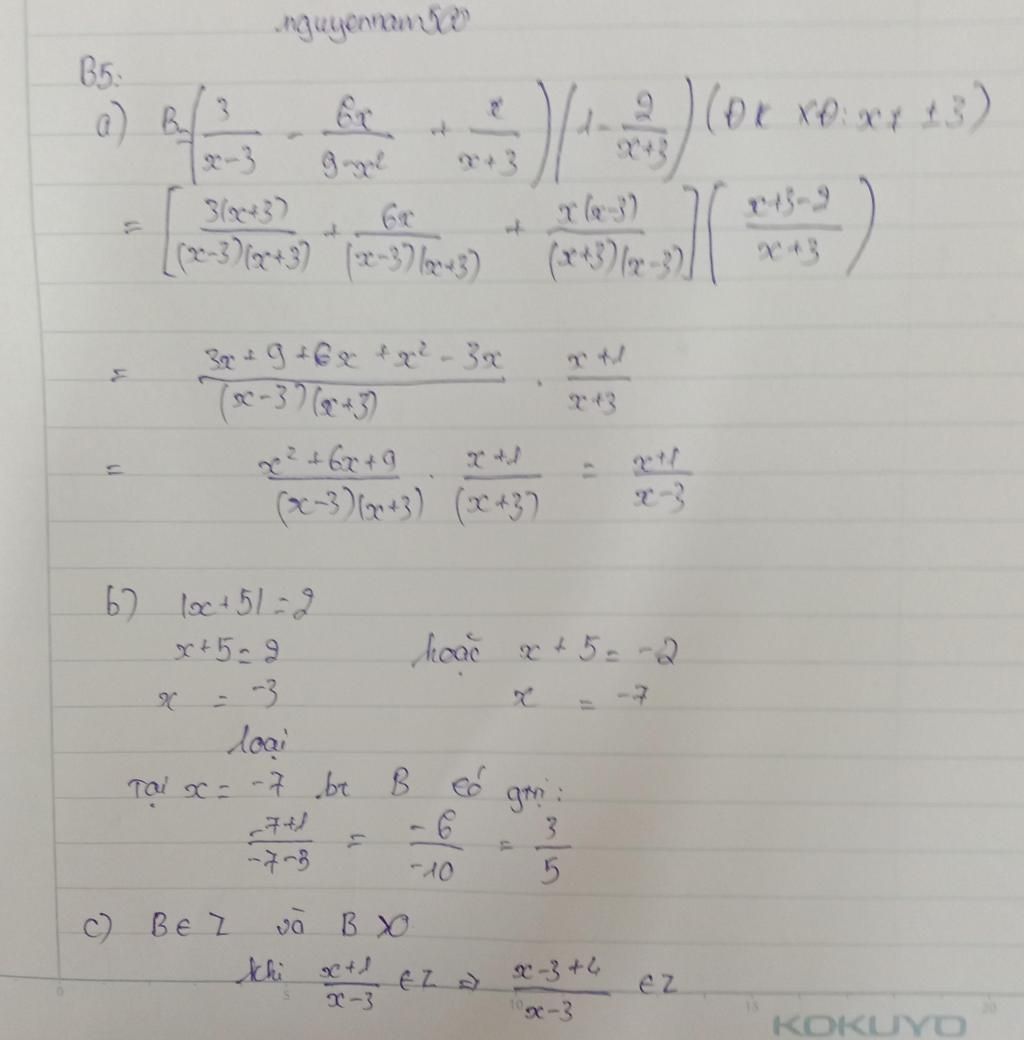 nguyennam500
B5:
a) B = (3/(x-3) - 6x/(9-x²) + x/(x+3)) (1 - 2/(x+3)) (ĐK XĐ: x ≠ ±3)
= [3(x+3)/((x-3)(x+3)) + 6x/((x-3)(x+3)) + x(x-3)/((x+3)(x-3))] ((x+3-2)/(x+3))
= (3x+9+6x+x²-3x)/((x-3)(x+3)) . (x+1)/(x+3)
= (x²+6x+9)/((x-3)(x+3)) . (x+1)/(x+3) = (x+1)/(x-3)
b) |x+5| = 2
x+5 = 2 hoặc x+5 = -2
x = -3 x = -7
loại
Tại x = -7 bt B có gtrị:
(-7+1)/(-7-3) = -6/-10 = 3/5
c) B ∈ Z và B >0
khi (x+1)/(x-3) ∈ Z ⇒ (x-3+4)/(x-3) ∈ Z
0 5 10 15 20
KOKUYO